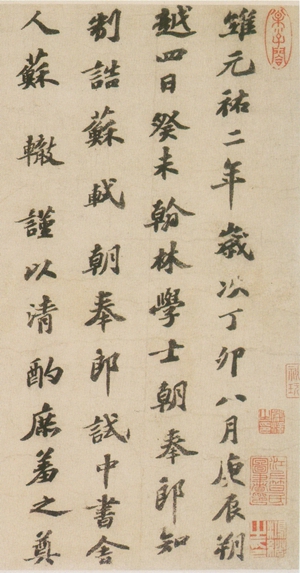 維元祐二年歲次丁卯八月庚辰朔
越四日癸未翰林學士朝奉郎知
制誥蘇軾朝奉郎試中書舍
人蘇轍謹以清酌庶羞之奠